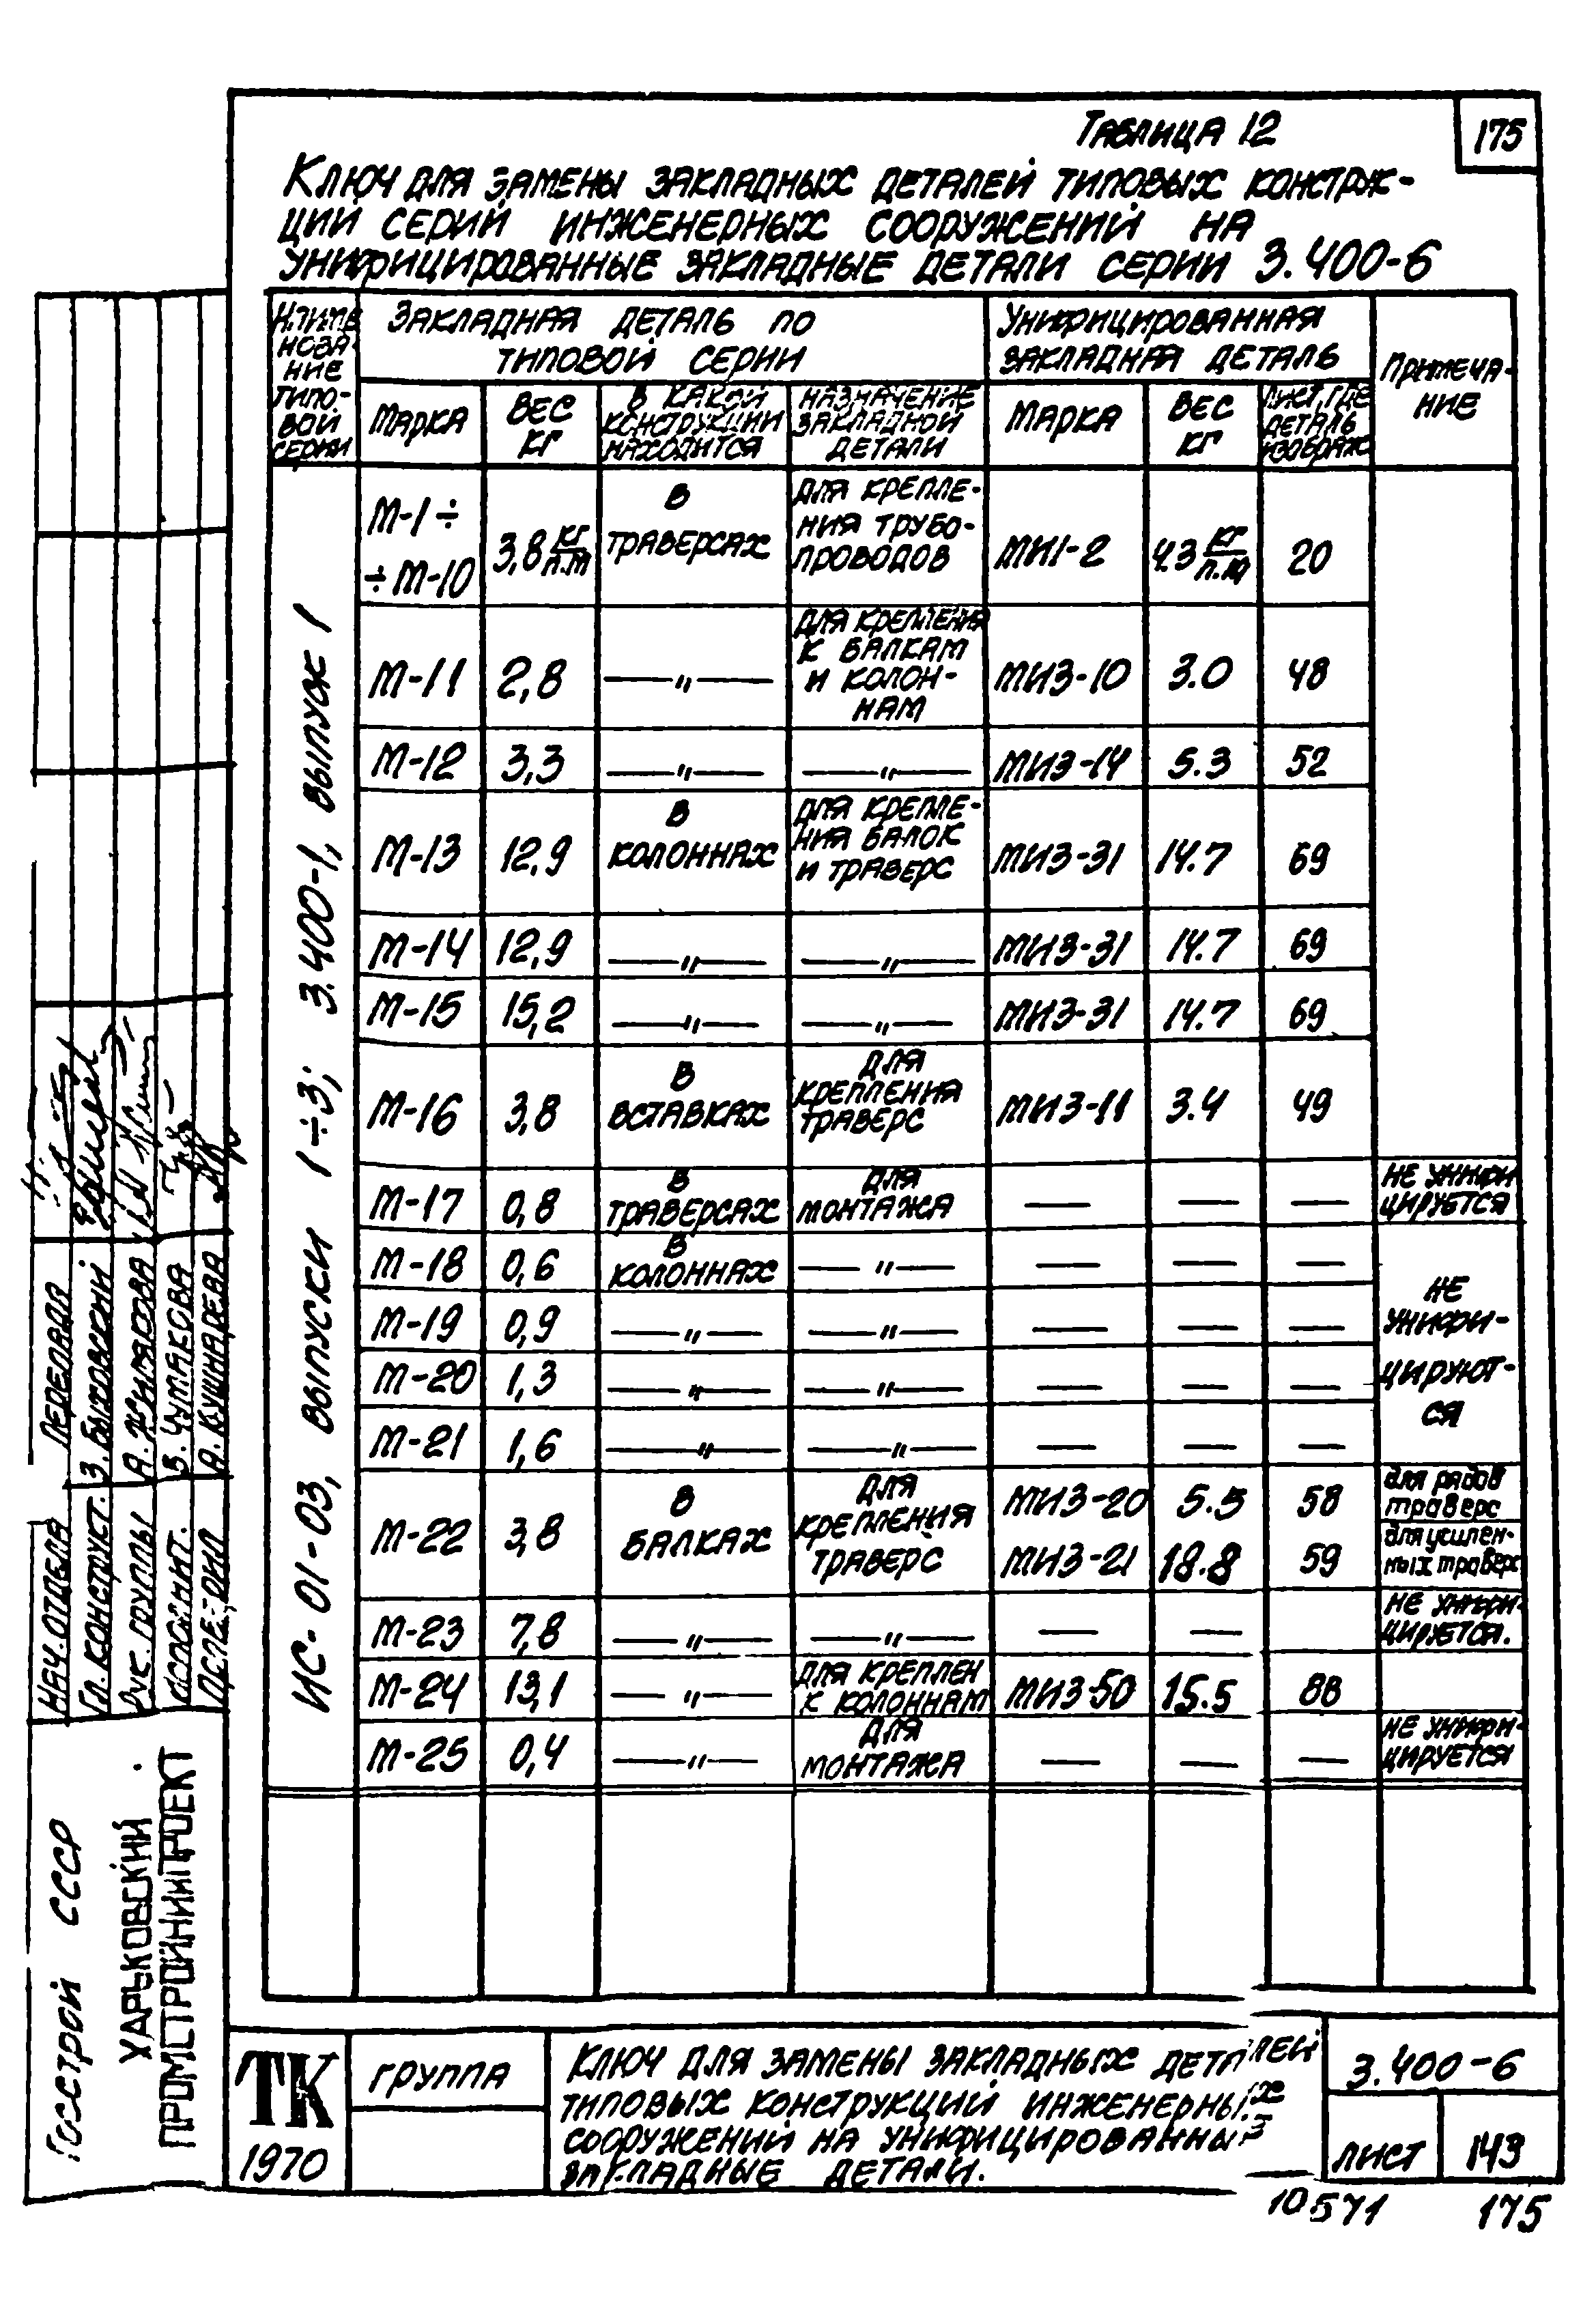 Таблица 12
175
Ключ для замены закладных деталей типовых конструк-
ций серий инженерных сооружений на
унифицированные закладные детали серии 3.400-6
Наиме
нова-
ние
типо-
вой
серии
Закладная деталь по
типовой серии
Унифицированная
закладная деталь
Примеча-
ние
Марка
Вес
кг
в какой
конструкции
находится
назначение
закладной
детали
Марка
Вес
кг
Лист, где
деталь
изображ
ИС-01-03, выпуски 1÷3; 3.400-1, выпуск 1
М-1÷
÷М-10
3,8 кг/п.м
в
траверсах
для крепле-
ния трубо-
проводов
МИ1-2
4.3 кг/п.м
20
М-11
2,8
—〃—
для крепления
к балкам
и колон-
нам
МИ3-10
3.0
48
М-12
3,3
—〃—
—〃—
МИ3-14
5.3
52
М-13
12,9
в
колоннах
для крепле-
ния балок
и траверс
МИ3-31
14.7
69
М-14
12,9
—〃—
—〃—
МИ3-31
14.7
69
М-15
15,2
—〃—
—〃—
МИ3-31
14.7
69
М-16
3,8
в
вставках
для
крепления
траверс
МИ3-11
3.4
49
М-17
0,8
в
траверсах
для
монтажа
—
—
—
не унифи
цируется
М-18
0,6
в
колоннах
—〃—
—
—
—
не
унифи-
цируют-
ся
М-19
0,9
—〃—
—〃—
—
—
—
М-20
1,3
—〃—
—〃—
—
—
—
М-21
1,6
—〃—
—〃—
—
—
—
М-22
3,8
в
балках
для
крепления
траверс
МИ3-20
5.5
58
для рядов
траверс
МИ3-21
18.8
59
для усилен-
ных траверс
М-23
7,8
—〃—
—〃—
—
—
не унифи-
цируется.
М-24
13,1
—〃—
для креплен
к колоннам
МИ3-50
15.5
88
М-25
0,4
—〃—
для
монтажа
—
—
—
не унифи-
цируется
Нач. отдела Переяода
Гл. конструкт. З. Быховский
Рук. группы
В. Чумакова
А. Кушнарева
Госстрой СССР
Харьковский
Промстройниипроект
ТК
1970
группа
Ключ для замены закладных деталей
типовых конструкций инженерных
сооружений на унифицированные
закладные детали.
3.400-6
лист
143
10571
175